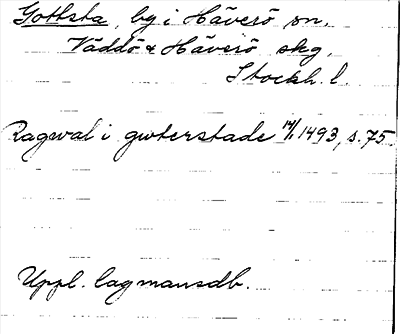 Gottsta, by i Häverö sn,
Väddö & Häverö skg,
Stockh. l.
Ragwal i gwterstade 14/1 1493, s. 75
Uppl. lagmansdb.